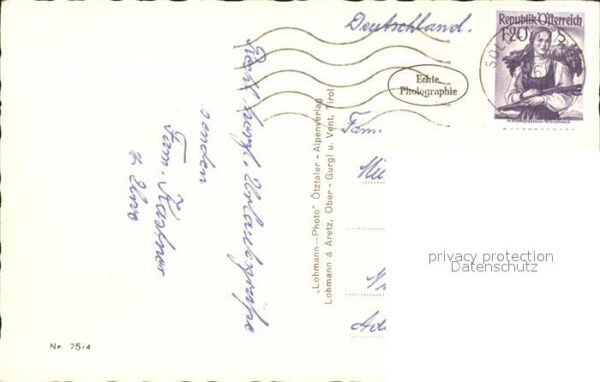 Deutschland.
Republik Österreich
1.20 S
SÖL
Echte
Photographie
Recht herzl. Urlaubsgrüße
senden
Fam. Kastner
"Lohmann—Photo" Ötztaler - Alpenverlag
Lohmann & Aretz, Ober - Gurgl u. Vent, Tirol
Fam.
privacy protection
Datenschutz
Nr. 75/4